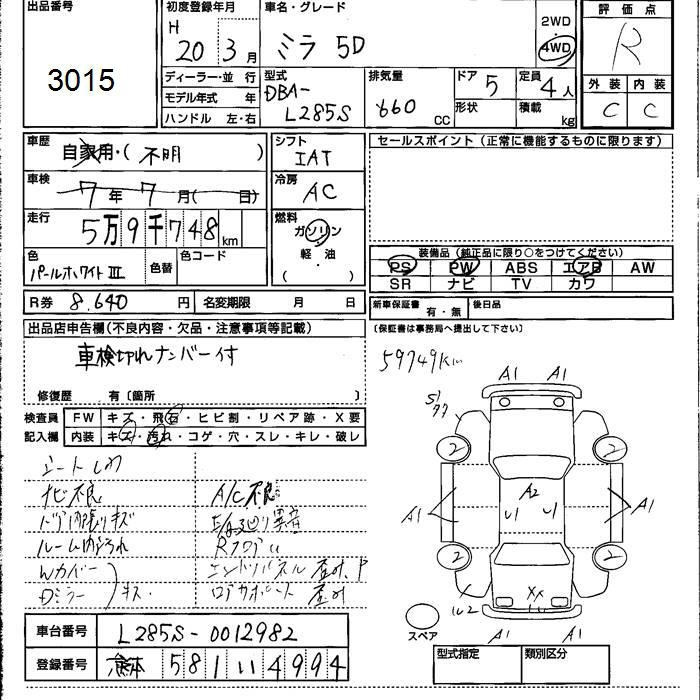 出品番号
3015
初度登録年月
H 20 3月
車名・グレード
ミラ 5D
2WD
4WD
評価点
R
外装 内装
C C
ディーラー・並行
モデル年式 年
ハンドル 左・右
型式
DBA-
L285S
排気量
660 cc
ドア 5
形状
定員 4人
積載 kg
車歴
自家用・( 不明 )
車検
7年7月( 日)
走行
5万9千748km
色
パールホワイトIII
色替
色コード
シフト
IAT
冷房
AC
燃料
ガソリン
・
軽・油
( )
セールスポイント(正常に機能するものに限ります)
装備品(純正品に限り○をつけてください)
PS PW ABS エアB AW
SR ナビ TV カワ
R券 8,640円 名変期限 月 日
新車保証書 有・無 後日品
(保証書は事務局へ提出して下さい)
出品店申告欄(不良内容・欠品・注意事項等記載)
車検切れナンバー付
修復歴 有〔箇所 〕
59749Km
検査員
記入欄
FW キズ・飛石・ヒビ割・リペア跡・X要
内装 キズ・汚れ・コゲ・穴・スレ・キレ・破レ
ナビ不良
A/C不良
ドア内張りキズ
ルーム内汚れ
Wカバー
Dミラー
キズ
A1 A1
2 2
A1 A2 A1
2 2
XX
A1 A1
スペア
車台番号 L285S-0012982
登録番号 熊本 581 い 4994
型式指定 類別区分